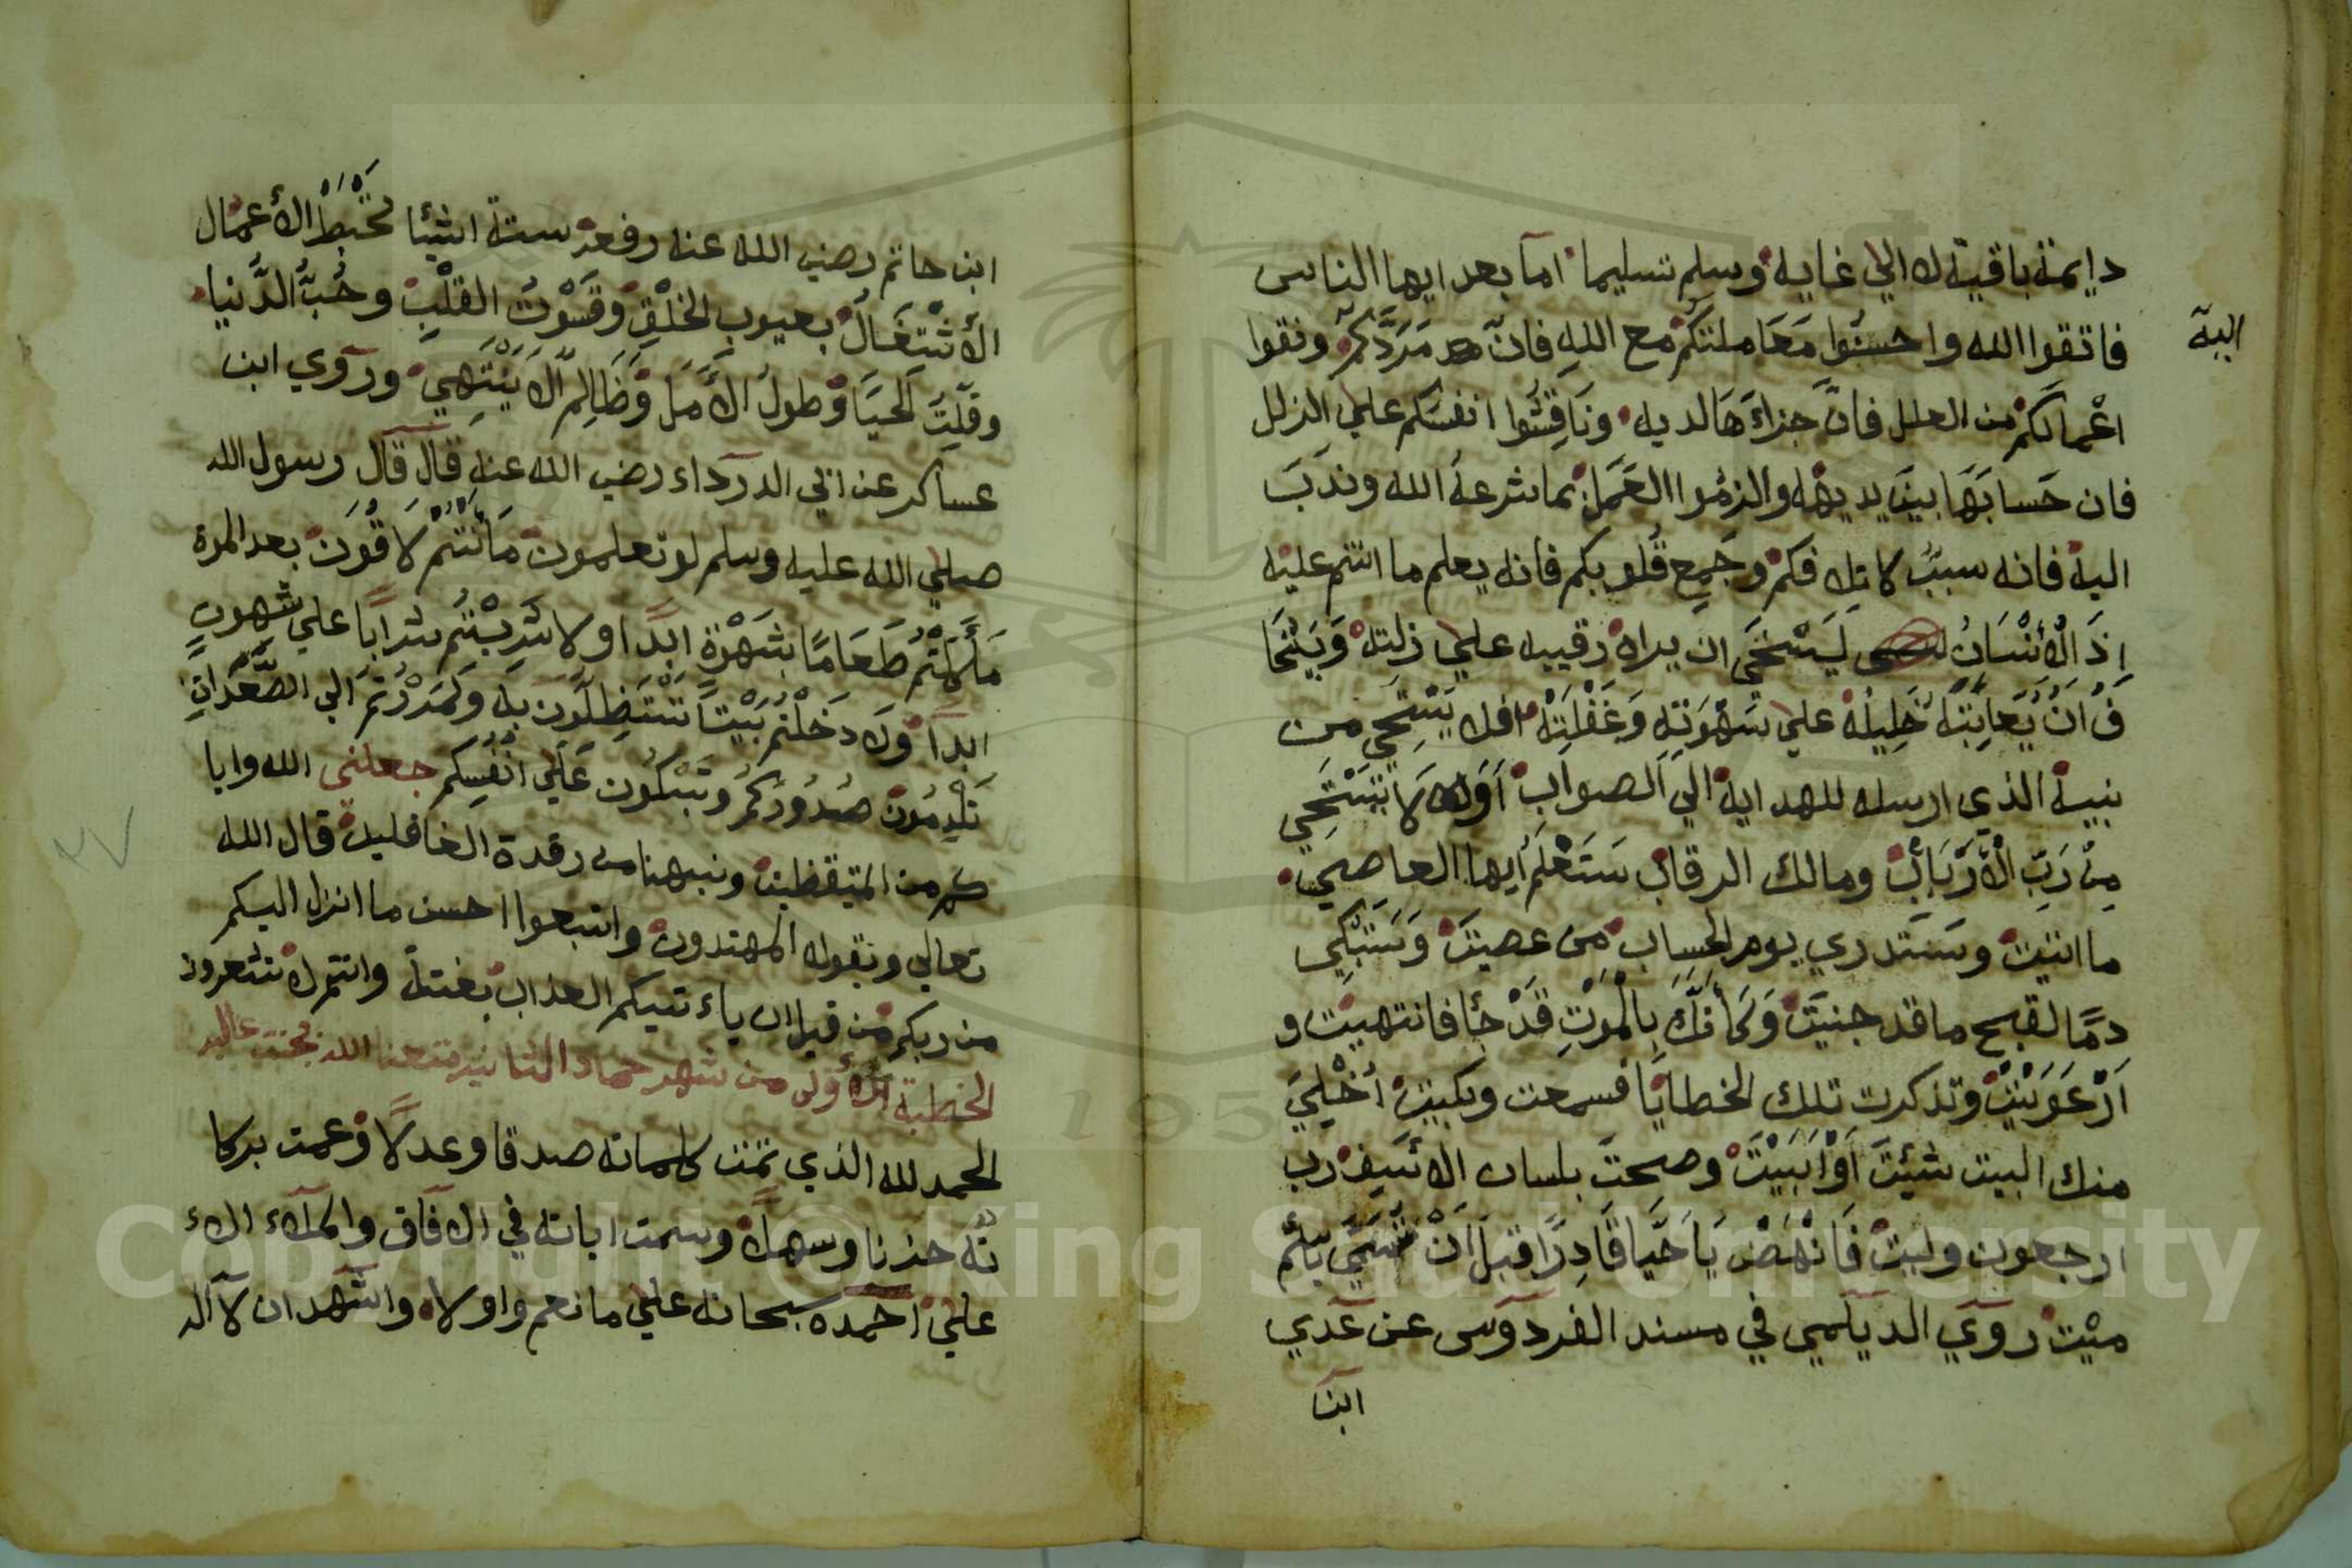 دايمة باقية لا الي غايه وسلم تسليما اما بعد ايها الناس
فاتقوا الله واحسنوا معاملتكم مع الله فان مردكم ونقوا
اليه
اعمالكم من العلل فان جزاءها لديه وناقشوا انفسكم علي الزلل
فان حسابها بين يديه والزموا العمل بما شرعه الله وندب
اليه فانه سبب لاتلافكم وجمع قلوبكم فانه يعلم ما انتم عليه
اذ الانسان ليستحي ان يراه رقيبه علي زلته ويتحا
ف ان يعاتبه خليله علي شهوته وغفلته افلا يستحي من
نبيه الذي ارسله للهداية الي الصواب اولا تستحي
من رب الارباب ومالك الرقاب ستعلم ايها العاصي
ما اتيت وستدري يوم الحساب من عصيت وستبكي
دما لقبح ما قد جنيت وكانك بالموت قد جا فانتهيت و
ارعويت وتذكرت تلك الخطايا فسمعت وبكيت اخلي
منك البيت شيت او ابيت وصحت بلسان الاسيف رب
ارجعون وليت فانهض يا حيا قادرا قبل ان تسمي باسم
ميت روي الديلمي في مسند الفردوس عن عدي
ابن
ابن حاتم رضي الله عنه رفعه ستة اشيا تحبط الاعمال
الاشتغال بعيوب الخلق وقسوت القلب وحب الدنيا
وقلت الحيا وطول الامل وظالم لا ينتهي وروي ابن
عساكر عن ابي الدرداء رضي الله عنه قال قال رسول الله
صلي الله عليه وسلم لو تعلمون ما انتم لاقون بعد الموت
ما اكلتم طعاما بشهوة ابدا ولا شربتم شرابا علي شهوت
ابدا ولا دخلتم بيتا تستظلون به ولمررتم الي الصعدات
تلدمون صدوركم وتبكون علي انفسكم جعلني الله وايا
كم من المتيقظين ونبهنا من رقدة الغافلين قال الله
تعالي وبقوله المهتدون واتبعوا احسن ما انزل اليكم
من ربكم من قبل ان ياءتيكم العذاب بغتة وانتم لا تشعرون
الخطبة الاولي من شهر جماد الثانيه متعنا الله بجنت عاليه
الحمد لله الذي تمت كلماته صدقا وعدلا وعمت بركا
ته حزنا وسهلا وسمت اياته في الافاق والملاء الا
علي احمده سبحانه علي ما نعم واولاه واشهد ان لا اله
٣٧